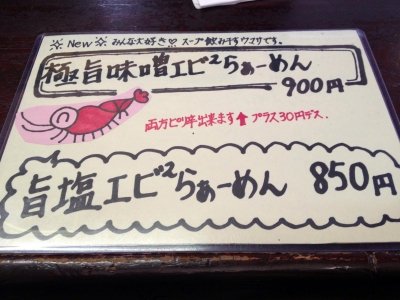 ※New※ みんな大好き♡ スープ飲み干すウマサです。
極旨味噌エビ²らぁーめん
900円
両方ピリ辛出来ます↑プラス30円デス.
旨塩エビ²らぁーめん 850円